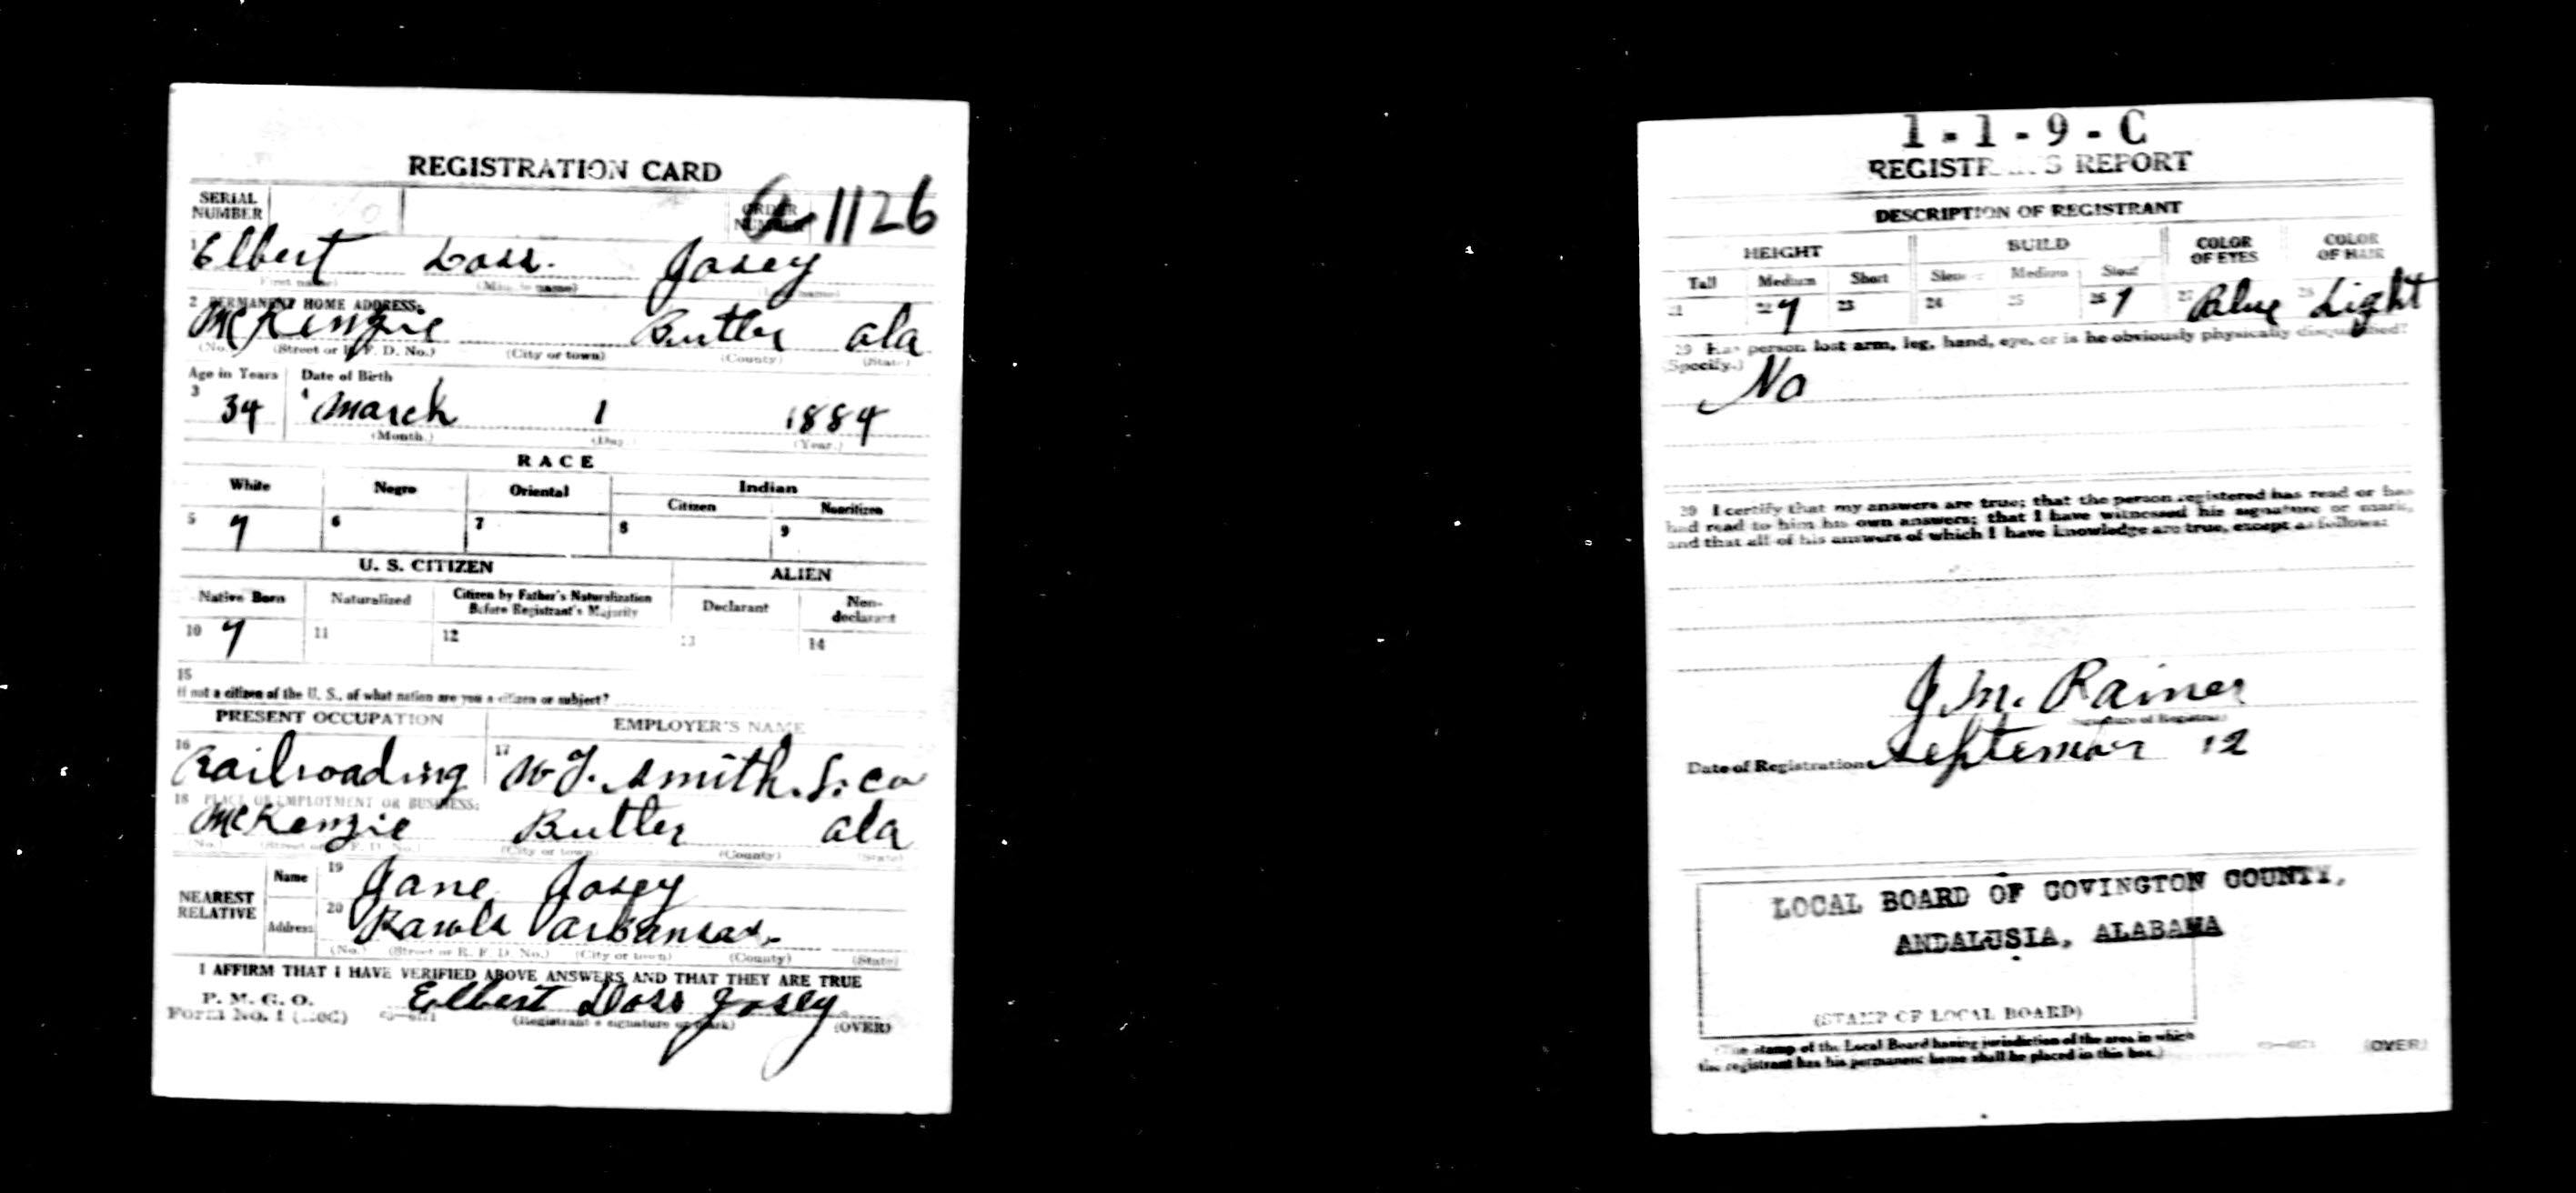 REGISTRATION CARD
SERIAL NUMBER
ORDER NUMBER
A 1126
1 Elbert Doss Josey
(First name) (Middle name) (Last name)
2 PERMANENT HOME ADDRESS:
McKenzie Butler ala
(No.) (Street or R. F. D. No.) (City or town) (County) (State)
Age in Years Date of Birth
3 34 4 March 1 1884
(Month.) (Day.) (Year.)
RACE
White Negro Oriental Indian
Citizen Noncitizen
5 6 7 8 9
U. S. CITIZEN ALIEN
Native Born Naturalized Citizen by Father's Naturalization Before Registrant's Majority Declarant Non-declarant
10 11 12 13 14
15
If not a citizen of the U. S., of what nation are you a citizen or subject?
PRESENT OCCUPATION EMPLOYER'S NAME
16 Railroading 17 W.T. Smith. L. Co
18 PLACE OF EMPLOYMENT OR BUSINESS:
McKenzie Butler ala
(No.) (Street or R. F. D. No.) (City or town) (County) (State)
NEAREST RELATIVE
Name 19 Jane Josey
Address 20 Arkansas.
(No.) (Street or R. F. D. No.) (City or town) (County) (State)
I AFFIRM THAT I HAVE VERIFIED ABOVE ANSWERS AND THAT THEY ARE TRUE
P. M. G. O.
Form No. 1 (Red)
Elbert Doss Josey
(Registrant's signature or mark) (OVER)
1-1-9-C
REGISTRAR'S REPORT
DESCRIPTION OF REGISTRANT
HEIGHT BUILD COLOR OF EYES COLOR OF HAIR
Tall Medium Short Slender Medium Stout
21 22 23 24 25 26 27 Blue 28 Light
29 Has person lost arm, leg, hand, eye, or is he obviously physically disqualified?
(Specify.) No
30 I certify that my answers are true; that the person registered has read or has
had read to him his own answers; that I have witnessed his signature or mark,
and that all of his answers of which I have knowledge are true, except as follows:
J. M. Rainer
(Signature of Registrar)
Date of Registration September 12
LOCAL BOARD OF COVINGTON COUNTY,
ANDALUSIA, ALABAMA
(STAMP OF LOCAL BOARD)
(The stamp of the Local Board having jurisdiction of the area in which
the registrant has his permanent home shall be placed in this box.)
(OVER)